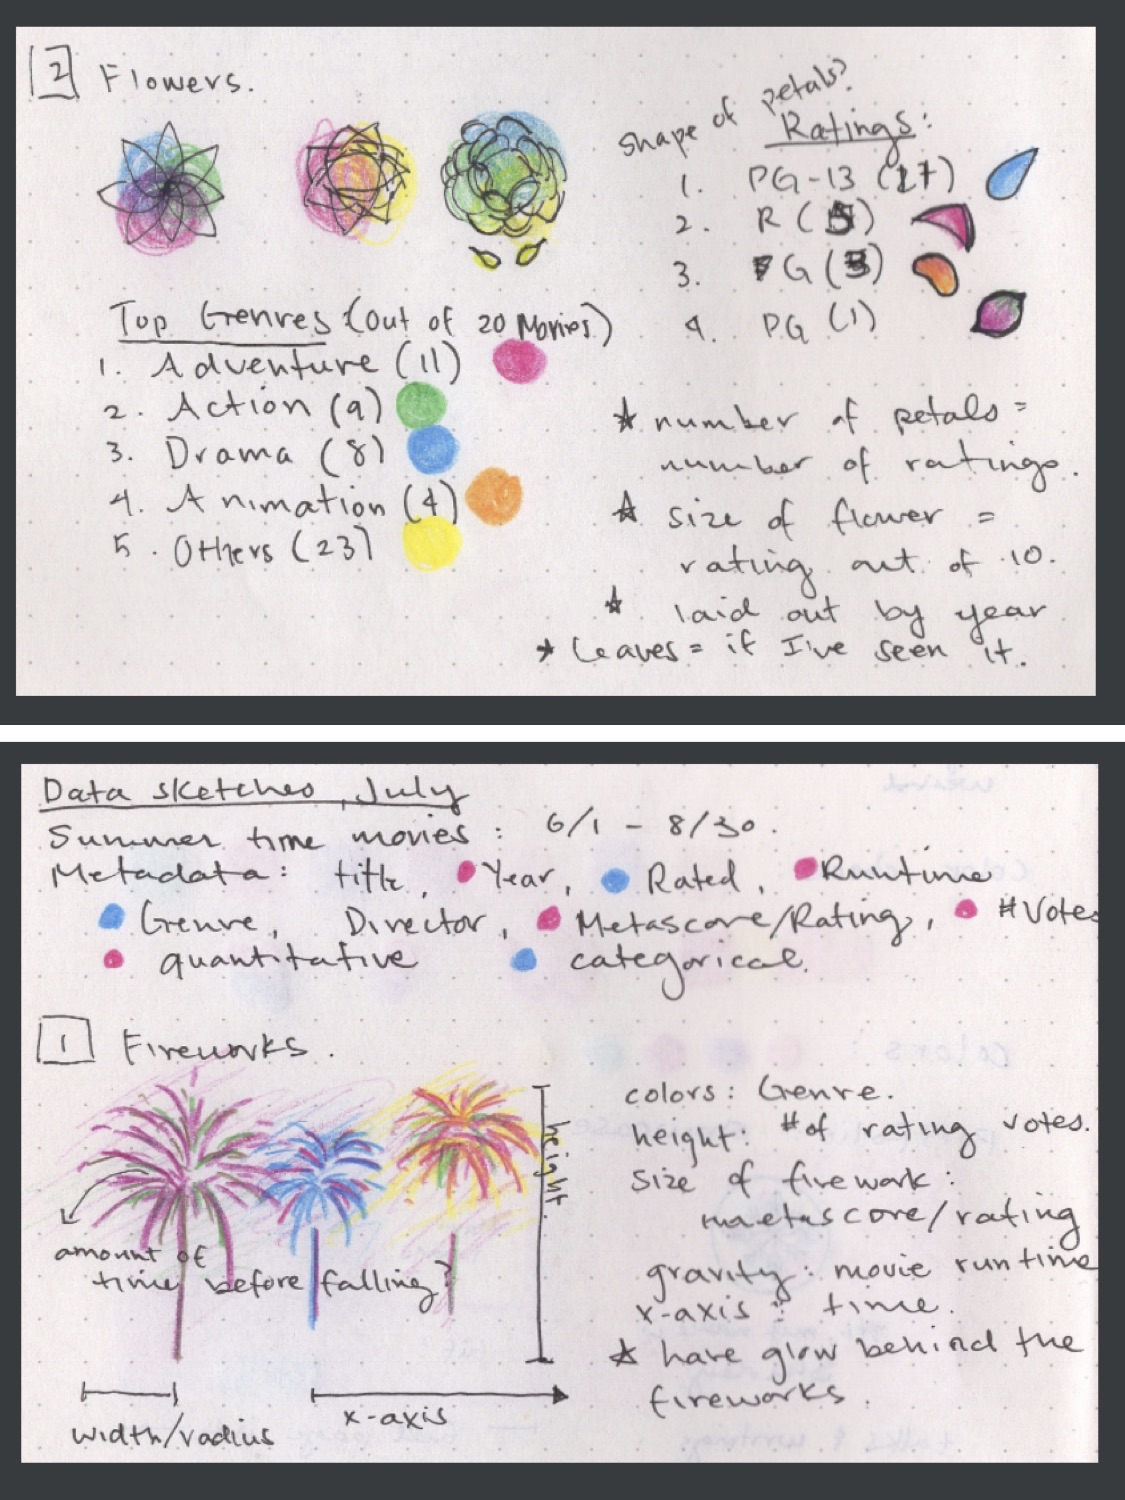 2 Flowers.
shape of petals?
Ratings:
1. PG-13 (17)
2. R (5)
3. G (3)
4. PG (1)
Top Genres: (out of 20 Movies)
1. Adventure (11)
2. Action (9)
3. Drama (8)
4. Animation (4)
5. Others (23)
★ number of petals =
number of ratings.
★ size of flower =
rating out of 10.
★ laid out by year
★ Leaves = if I've seen it.
Data sketches, July
Summer time movies: 6/1 - 8/30.
Metadata: title, Year, Rated, Runtime
Genre, Director, Metascore/Rating, #Votes
quantitative categorical.
1 Fireworks.
height.
amount of
time before falling?
width/radius
x-axis
colors: Genre.
height: # of rating votes.
size of firework:
metascore/rating
gravity: movie runtime
x-axis: time.
★ have glow behind the
fireworks.